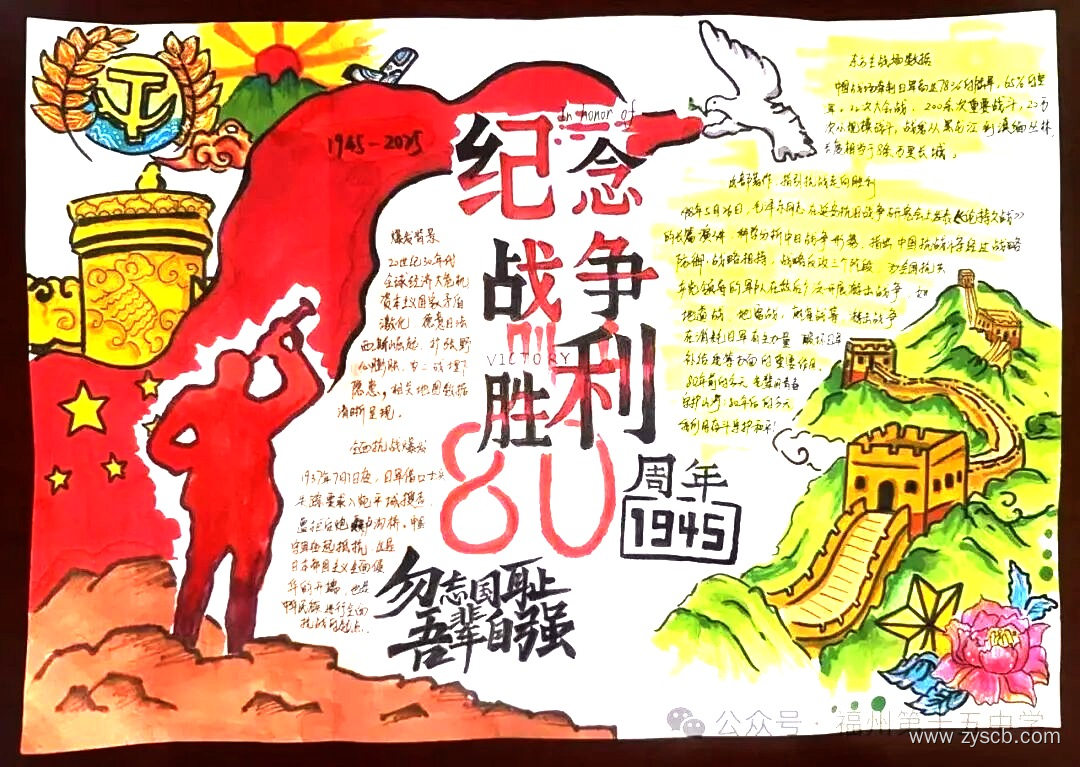 1945-2025
in honor of
纪念
战争
VICTORY
胜利
80
周年
1945
勿忘国耻
吾辈自强
爆发背景
20世纪30年代
全球经济大危机
资本主义国家矛盾
激化，德意日法
西斯崛起，扩张野
心膨胀，为二战埋下
隐患，相关地图数据
清晰呈现。
全面抗战爆发
1937年7月7日夜，日军借口士兵
失踪要求入宛平城搜查
遭拒后炮轰卢沟桥，中国
守军奋起抵抗，这是
日本帝国主义全面侵
华的开端，也是
中华民族进行全面
抗战的起点。
东方主战场数据
大会战，200余次重要战斗，20万
次小规模战斗，战线从黑龙江到滇缅丛林，
总长相当于8条万里长城。
指引抗战走向胜利
1938年5月26日，毛泽东同志在延安抗日战争研究会上发表《论持久战》
的长篇演讲，科学分析中日战争形势，指出中国抗战将经过战略
防御、战略相持、战略反攻三个阶段，为全国抗共
产党领导的军队在敌后广泛开展游击战争，如
地道战、地雷战、麻雀战等，游击战争
在消耗日军有生力量、破坏日军
补给线等方面的重要作用。
80年前的今天，先辈用青春
保护山河，80年后的今天
公众号·福州第十五中学
www.zyscb.com